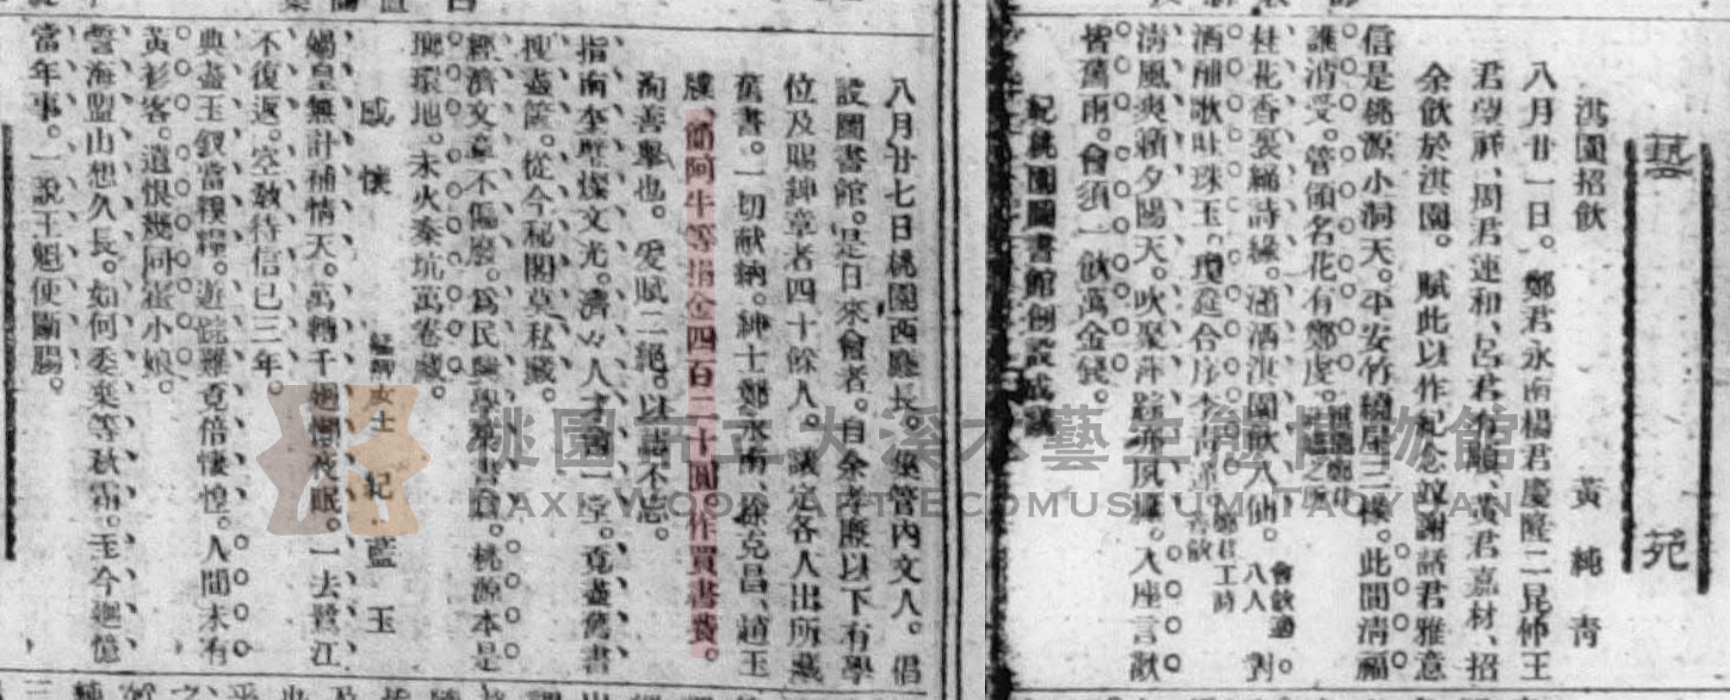 藝苑
淇園招飲 黃純青
八月廿一日。鄭君永南楊君慶隆二昆仲王
君 祥、周君連和、呂君有順、黃君嘉材、招
余飲於淇園。賦此以作紀念並謝諸君雅意
信是桃源小洞天。平安竹繞屋三椽。此間清福
誰消受。管領名花有鄭虔。
桂花香裏締詩緣。滿酒淇園飲八仙。 八人 會飲適 對
酒酣歌吐珠玉、瓊筵合
清風爽籟夕陽天。吹聚萍踪亦夙緣。入座言歡
皆舊雨。會須一飲萬金錢。
紀桃園圖書館創設成蹟
八月廿七日桃園西廳長。集管內文人。倡
設圖書館。是日來會者。自余 廳以下有學
位及賜紳章者四十餘人。議定各人出所藏
舊書。一切献納。紳士鄭永南、徐克昌、趙玉
牒、簡阿牛等捐金四百二十圓。作買書費。
洵善擧也。爰賦二絕。以誌不忘。
指南奎壁燦文光。濟々人才會一堂。竟盡舊書
搜盡篋。從今秘閣莫私藏。
經濟文章不偏廢。爲民興學 書倉。桃源本是
瑯環地。未火秦坑萬卷藏。
感懷 女士 紀藍玉
媧皇無計補情天。萬轉千廻 夜眠。一去鷺江
不復返。空敎待信已三年。
典盡玉釵當糗糧。遊 難竟倍悽惶。人間未有
黃衫客。遺恨幾同崔小娘。
誓海盟山想久長。如何委棄等秋霜。至今廻憶
當年事。一說王魁便斷腸。
桃園市立大溪木藝生態博物館
DAXI WOOD ART ECOMUSEUM, TAOYUAN